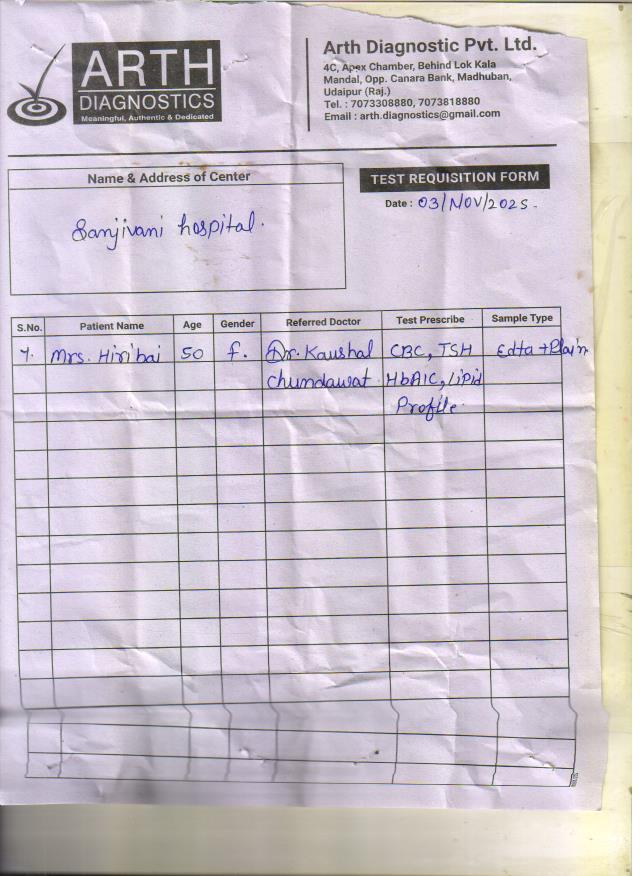 ARTH
DIAGNOSTICS
Meaningful, Authentic & Dedicated
Arth Diagnostic Pvt. Ltd.
4C, Apex Chamber, Behind Lok Kala
Mandal, Opp. Canara Bank, Madhuban,
Udaipur (Raj.)
Tel. : 7073308880, 7073818880
Email : arth.diagnostics@gmail.com
Name & Address of Center
Sanjivani hospital.
TEST REQUISITION FORM
Date : 03/NOV/2025.
S.No. Patient Name Age Gender Referred Doctor Test Prescribe Sample Type
1. Mrs. Hiribai 50 f. Dr. Kaushal CBC, TSH Edta + Plain
Chundawat HbA1C, Lipid
Profile.